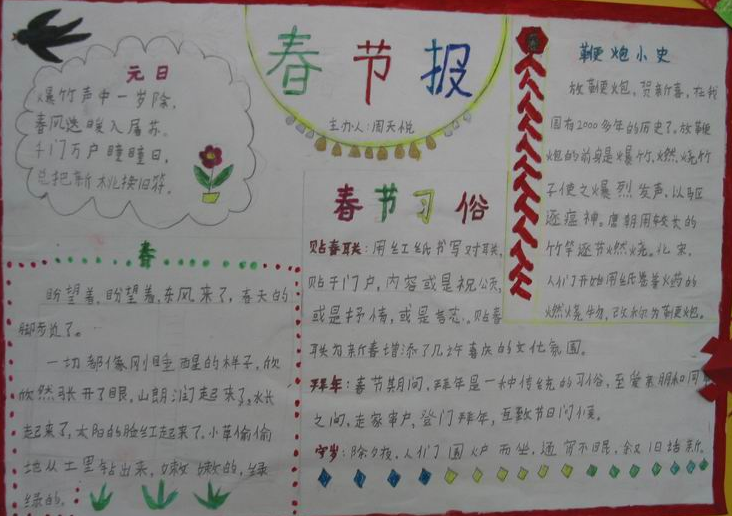 春节报
主办人:周天悦
元日
爆竹声中一岁除,
春风送暖入屠苏。
千门万户瞳瞳日,
总把新桃换旧符。
春
盼望着,盼望着,东风来了,春天的
脚步近了。
一切都像刚睡醒的样子,欣
欣然张开了眼,山朗润起来了,水长
起来了,太阳的脸红起来了。小草偷偷
地从土里钻出来,嫩嫩的,绿
绿的。
春节习俗
贴春联:用红纸书写对联,
贴于门户,内容或是祝颂,
或是抒情,或是言志。贴春
联为新春增添了几许喜庆的文化氛围。
拜年:春节期间,拜年是一种传统的习俗,至爱亲朋和同
之间,走家串户,登门拜年,互致节日问候。
守岁:除夕夜,人们围炉而坐,通宵不眠,叙旧话新。
鞭炮小史
放鞭炮,贺新喜,在我
国有2000多年的历史了。放鞭
炮的前身是爆竹,燃烧竹
子使之爆烈发声,以驱
逐瘟神。唐朝用较长的
竹竿逐节燃烧。北宋,
人们开始用纸卷着火药的
燃烧物,改称为鞭炮。